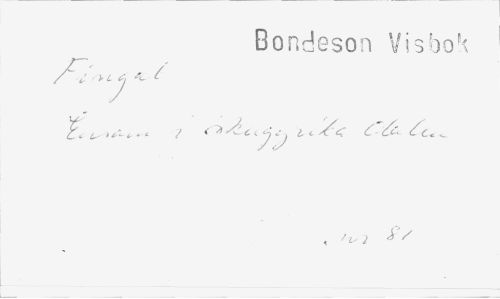 Bondeson Visbok
Fingal
Ensam i skuggrika dalen
nr 81